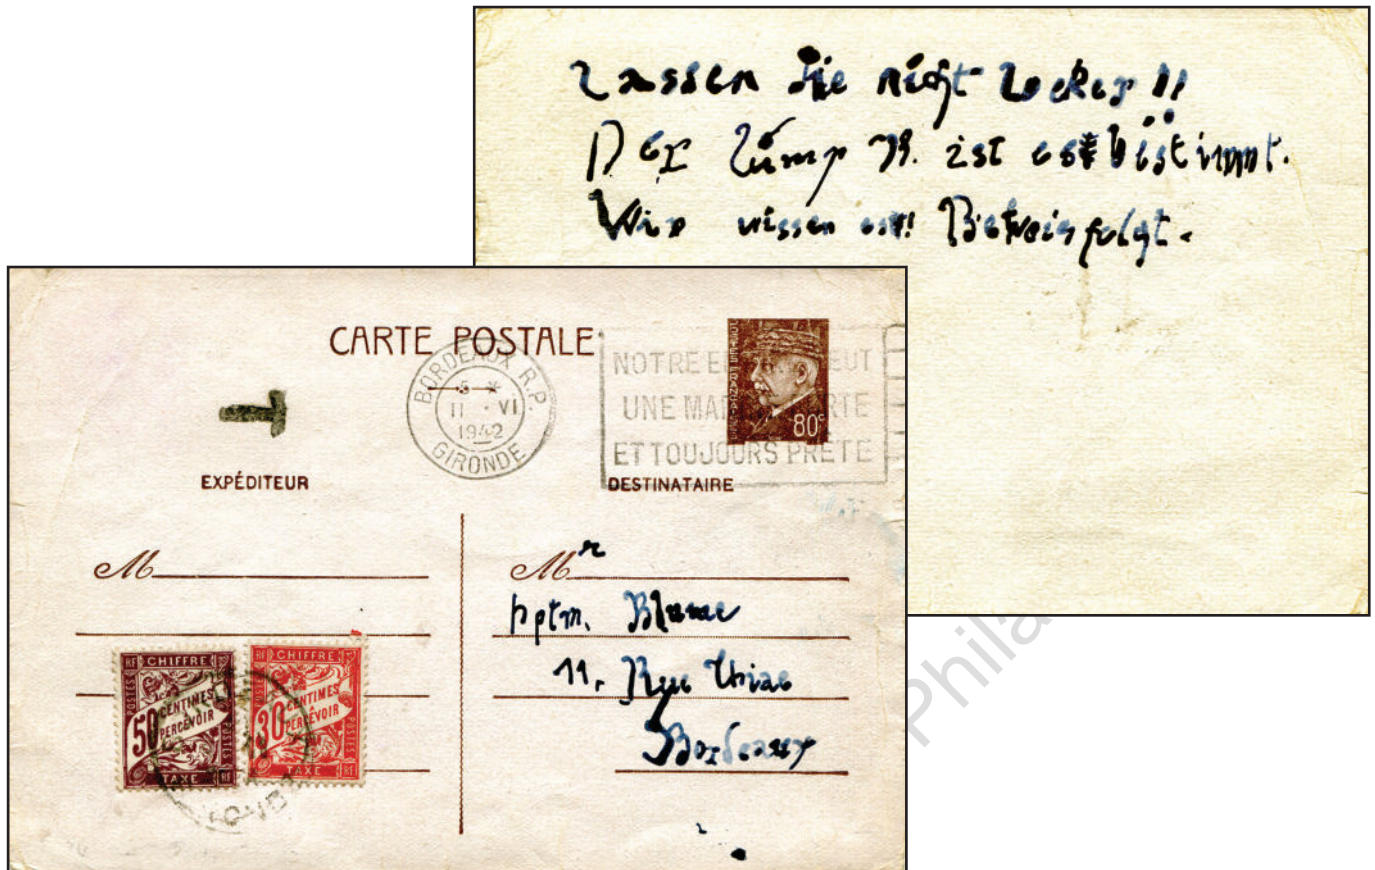 Lassen Sie nicht locker!!
Der Lump N. ist es bestimmt.
Wir wissen es!! Beweis folgt.
CARTE POSTALE
BORDEAUX R.P.
5 *
11 · VI
1942
GIRONDE
NOTRE EUT
UNE MA RTE
ET TOUJOURS PRÊTE
POSTES FRANÇAISES
80c
T
EXPÉDITEUR
DESTINATAIRE
M
Mr
Hptm. Blume
11, Rue Thiac
Bordeaux
RF CHIFFRE RF
POSTES
50 CENTIMES
PERCEVOIR
POSTES
TAXE RF
RF CHIFFRE RF
POSTES
30 CENTIMES
À PERCEVOIR
POSTES
TAXE RF
Phila